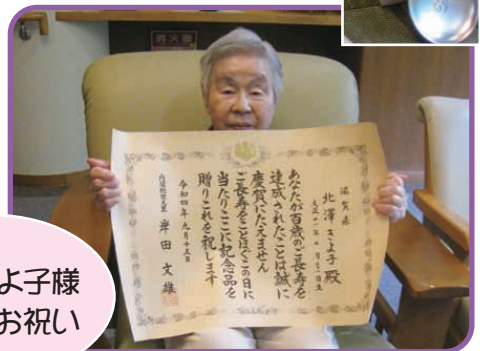 消火器
滋賀県
北澤きよ子殿
あなたが百歳のご長寿を
達成されたことは誠に
慶賀にたえません
ご長寿をことほぐこの日に
当たりここに記念品を
贈りこれを祝します
令和四年九月十五日
内閣総理大臣 岸田文雄
よ子様
お祝い